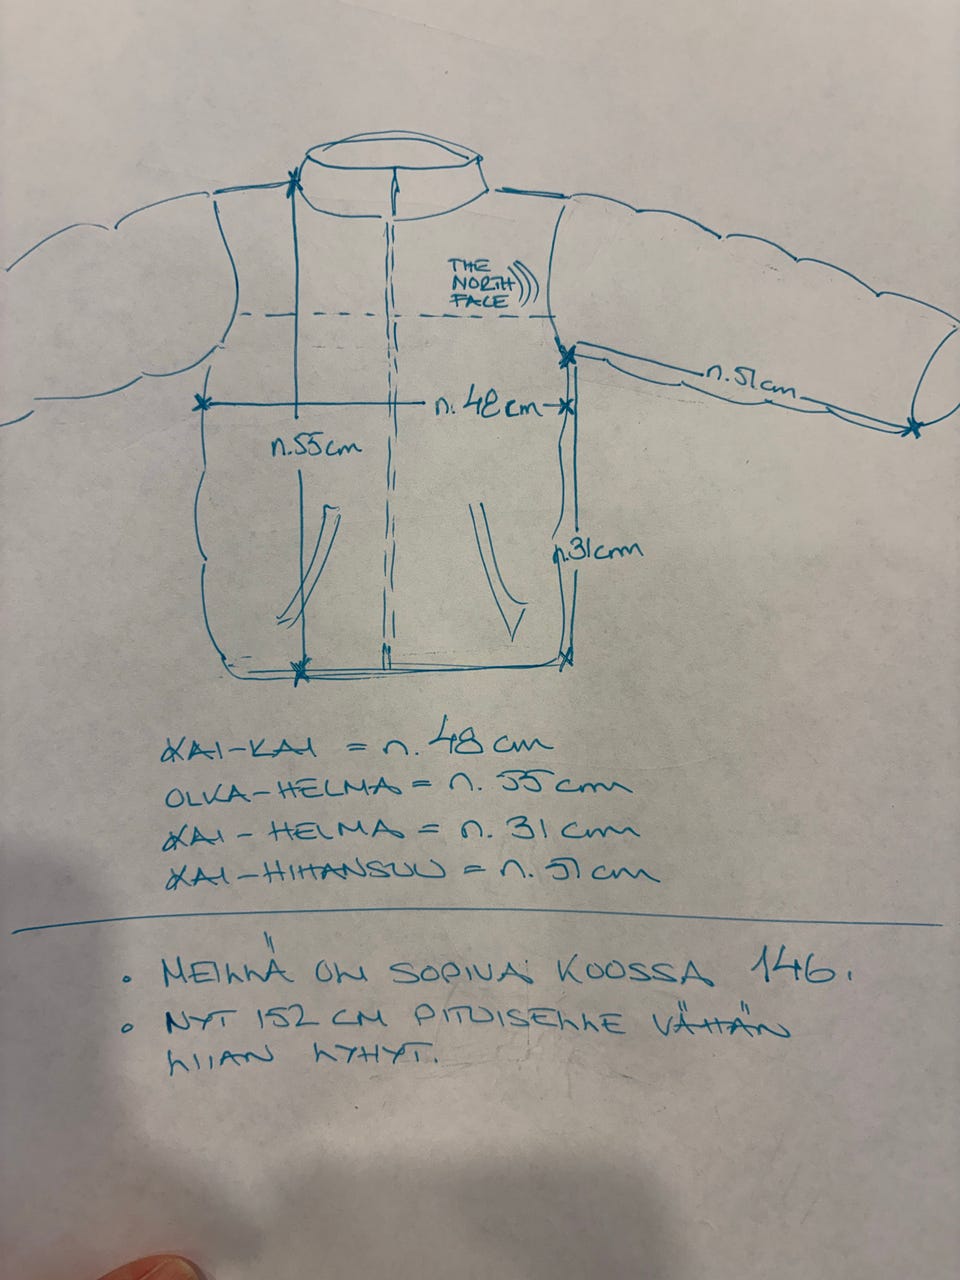 THE
NORTH
FACE
n. 51cm
n. 48cm
n. 55cm
n. 31cm
KAI-KAI = n. 48 cm
OLKA-HELMA = n. 55 cm
KAI-HELMA = n. 31 cm
KAI-HIHANSUU = n. 51 cm
• MEILLÄ OLI SOPIVA KOOSSA 146.
• NYT 152 CM PITUISELLE VÄHÄN
LIIAN LYHYT.